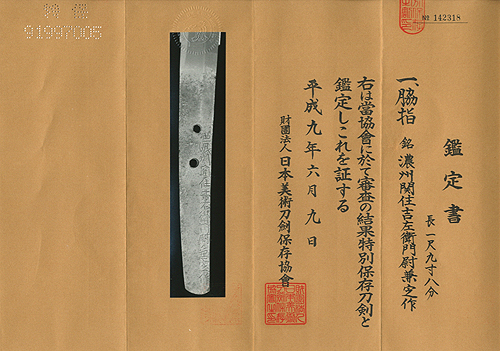 № 142318
鑑定書
一、脇指 銘 濃州関住吉左衛門尉兼定作
長一尺九寸八分
右は當協會に於て審査の結果特別保存刀剣と
鑑定しこれを証する
平成九年六月九日
財團法人 日本美術刀剣保存協會
特保
91997005